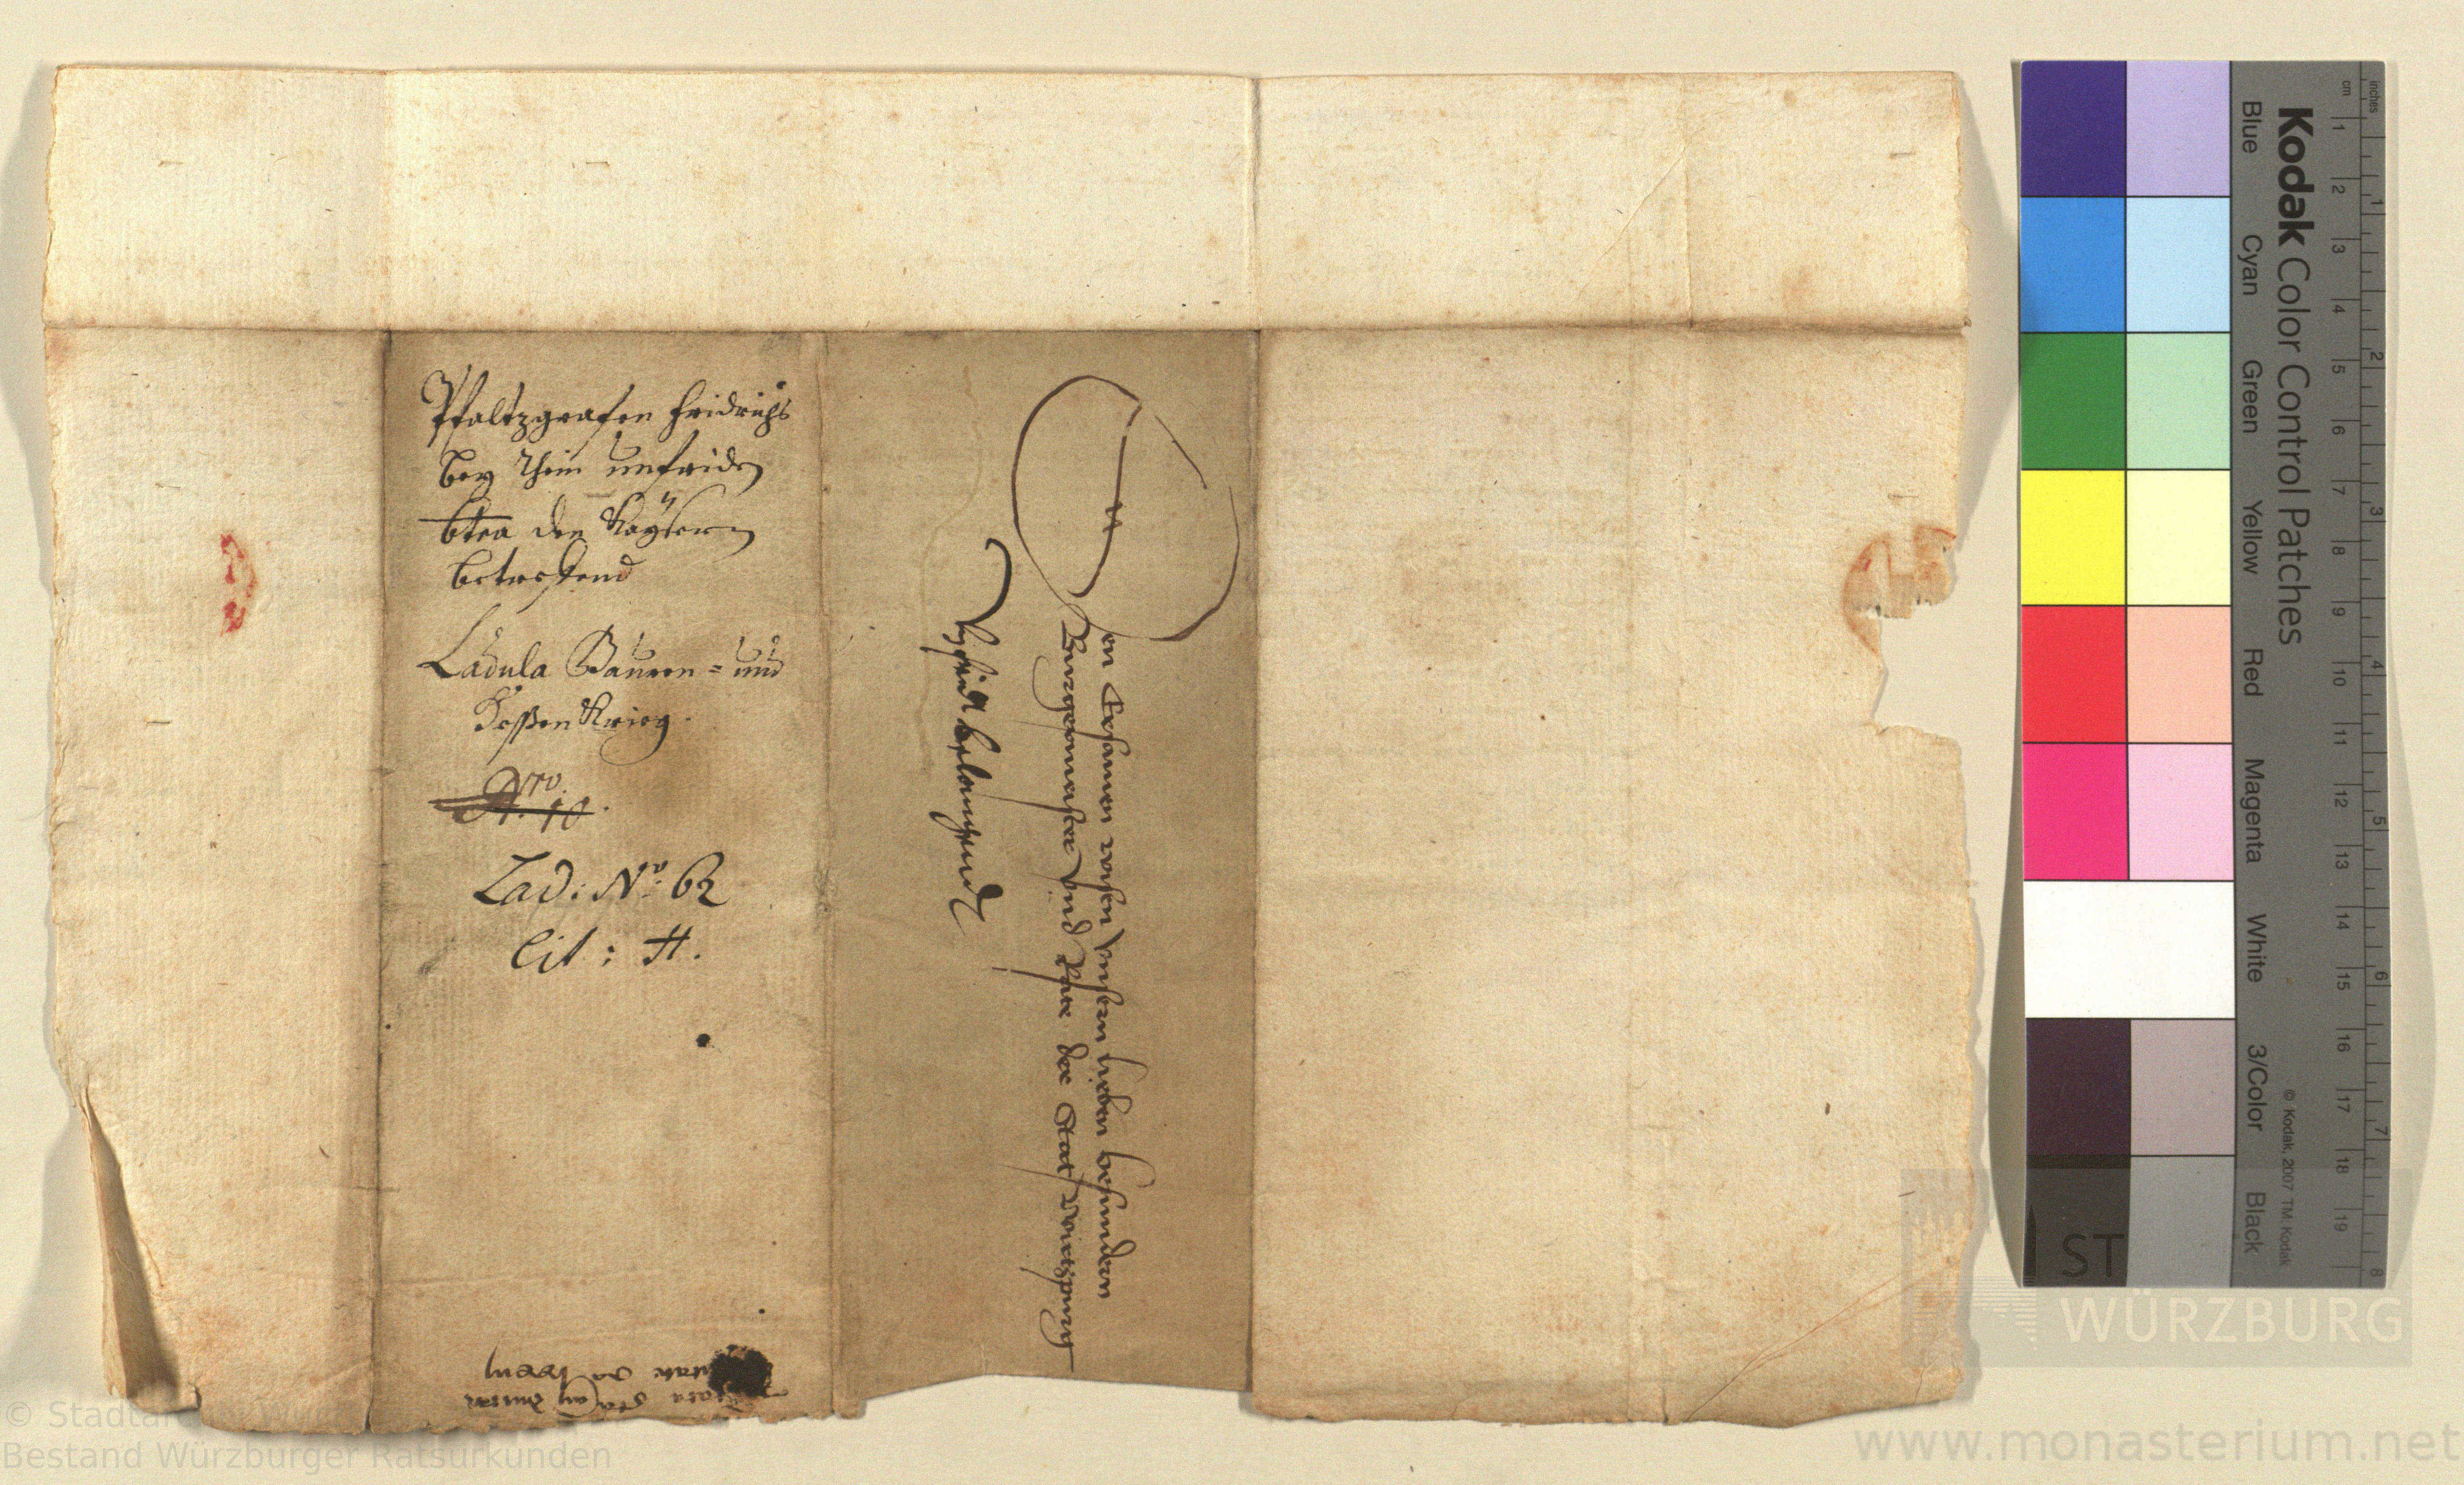 Pfaltzgrafen Fridrichs
bey Rhein unfriden
ctra den Kaÿsern
betreffend
Ladula Bauren= und
Hessen Krieg.
Nro. 10.
Lad: No. 62
Lit: H.
Den Ersamen weisen unsern lieben besundern
Burgermeister und Rate der Stat Wirtzpurg
belangend
Kodak Color Control Patches
Blue Cyan Green Yellow Red Magenta White 3/Color Black
© Kodak, 2007 TM: Kodak
inches 1 2 3 4 5 6 7 8
cm 1 2 3 4 5 6 7 8 9 10 11 12 13 14 15 16 17 18 19
ST
WÜRZBURG
Bestand Würzburger Ratsurkunden
www.monasterium.net